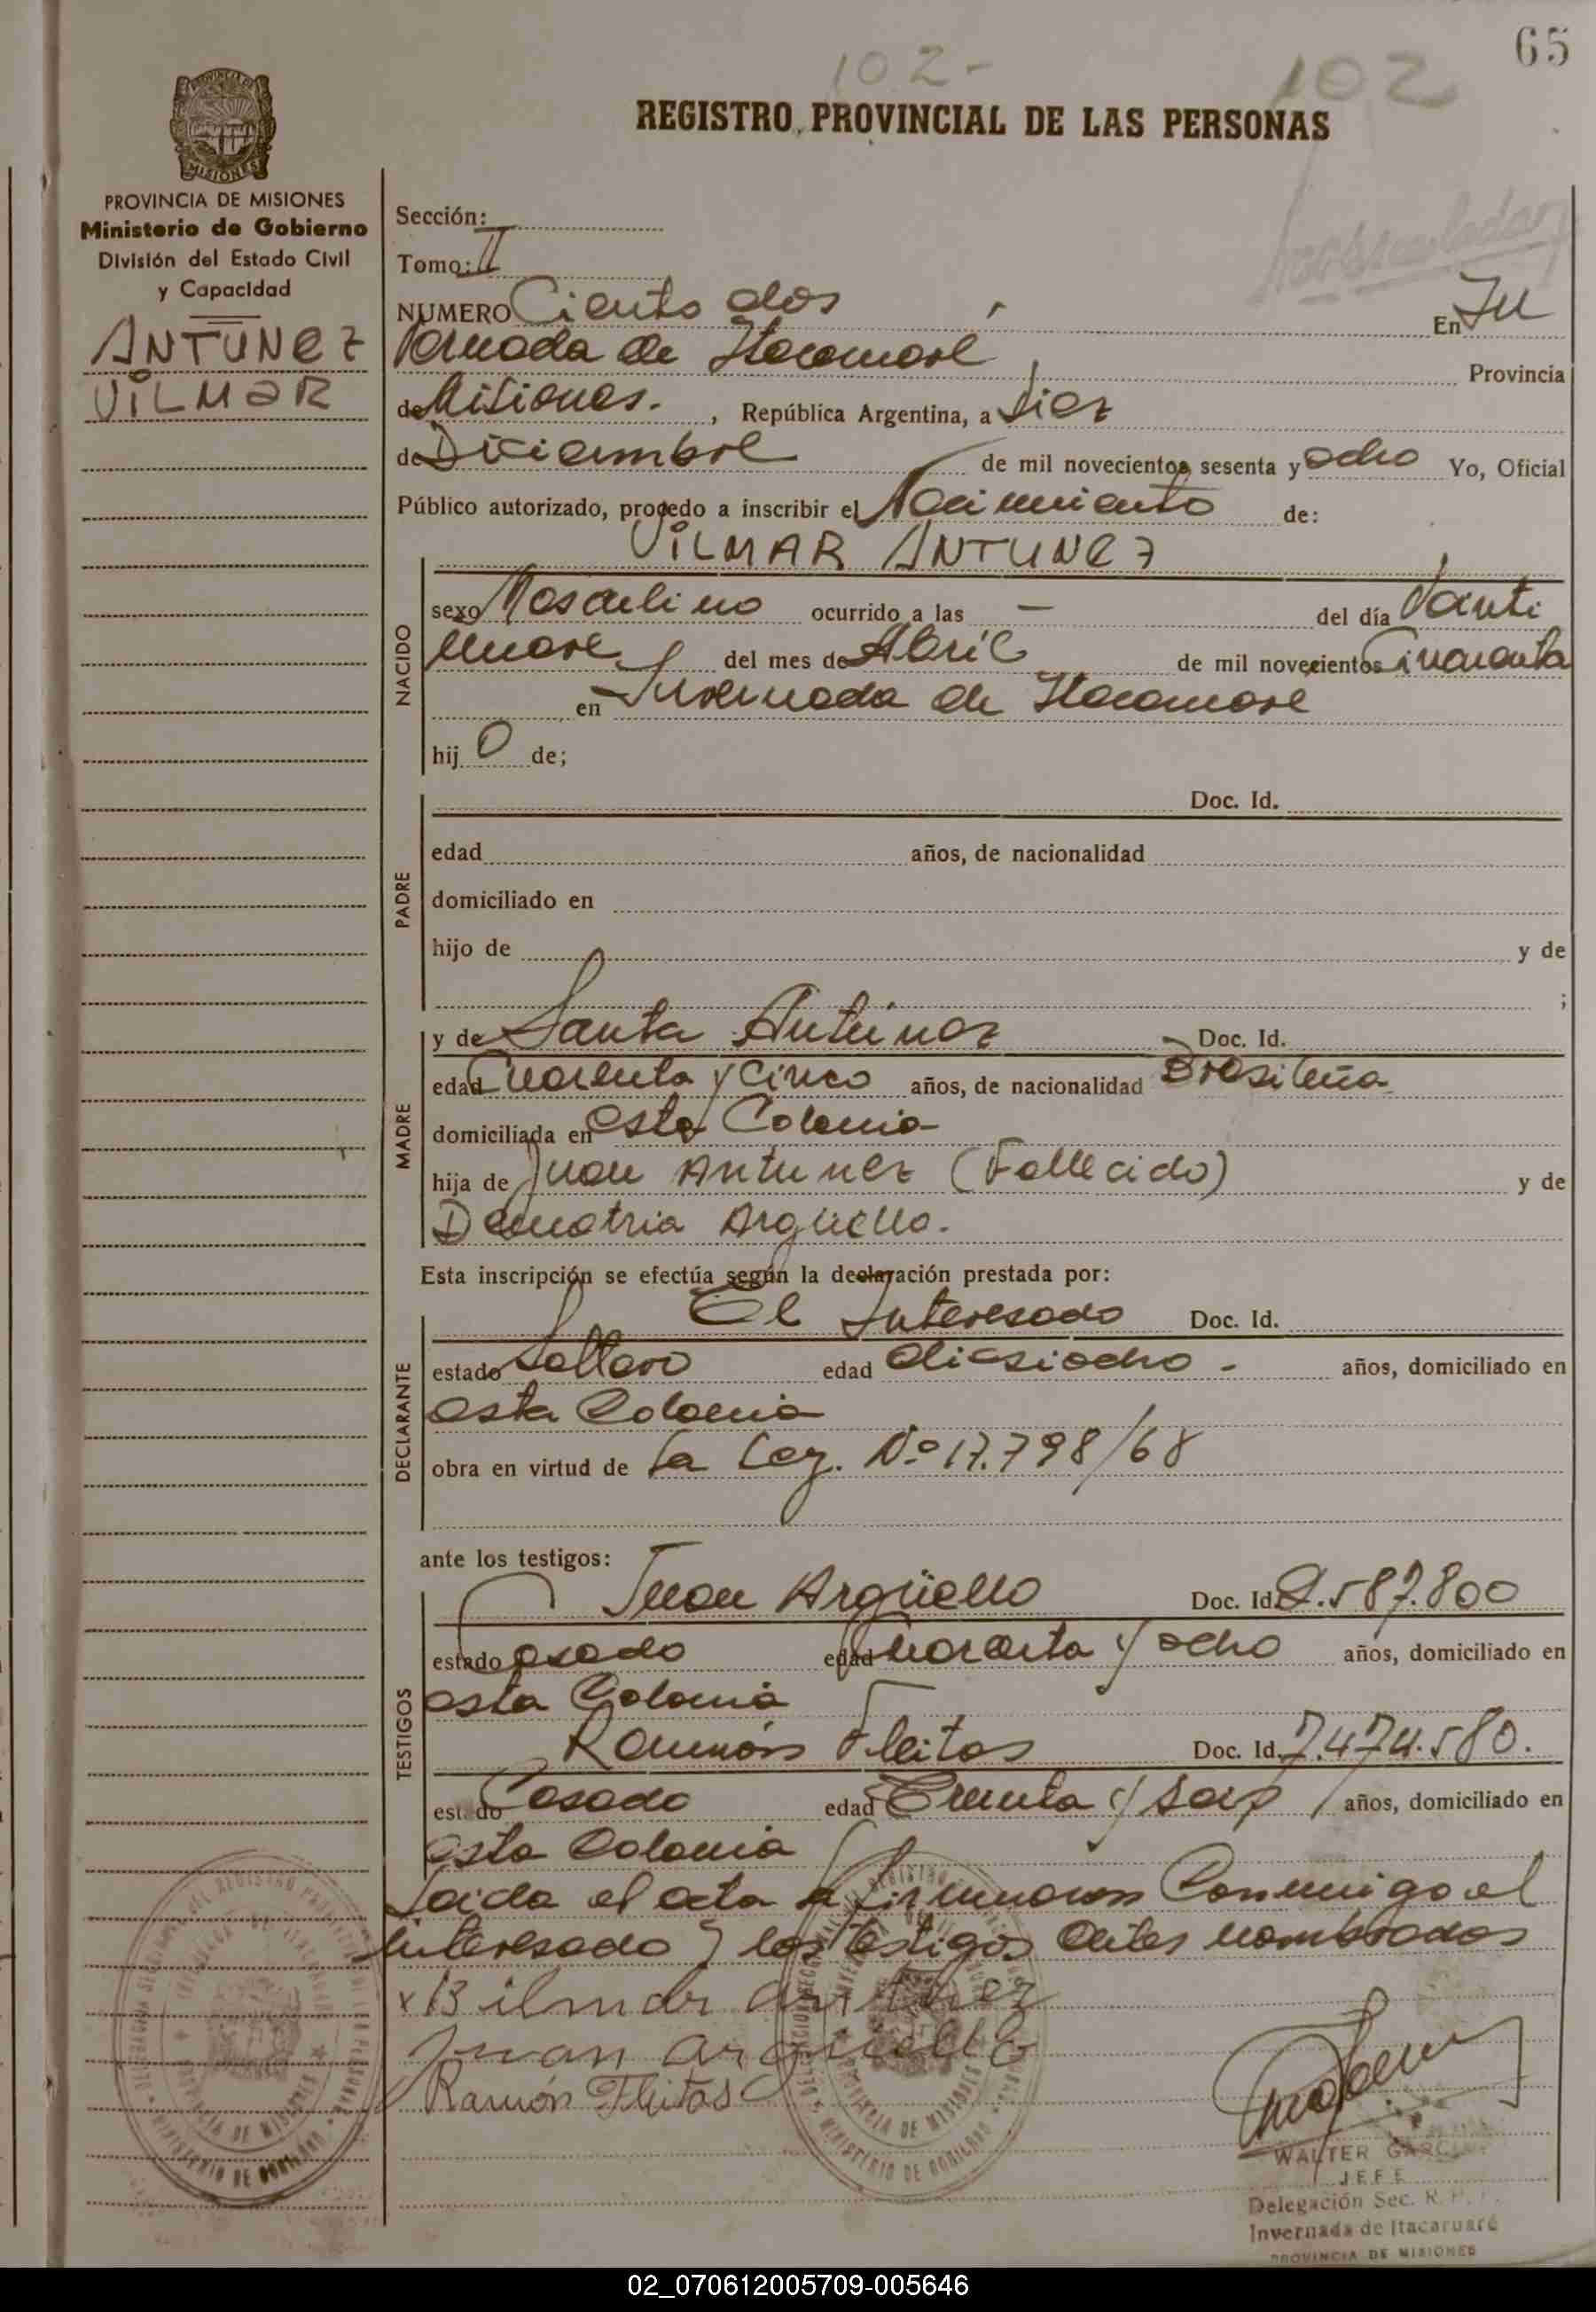 65
102- 102
REGISTRO PROVINCIAL DE LAS PERSONAS
PROVINCIA DE MISIONES
Ministerio de Gobierno
División del Estado Civil
y Capacidad
ANTUNEZ
VILMAR
Sección:
Tomo: II
NUMERO Ciento dos En In
vernada de Itacaruaré Provincia
de Misiones. , República Argentina, a Diez
de Diciembre de mil novecientos sesenta y ocho Yo, Oficial
Público autorizado, procedo a inscribir el Nacimiento de:
VILMAR ANTUNEZ
NACIDO
sexo Masculino ocurrido a las — del día Vainti
nueve del mes de Abril de mil novecientos Cincuenta
en Invernada de Itacaruare
hij o de;
PADRE
Doc. Id.
edad años, de nacionalidad
domiciliado en
hijo de y de
;
MADRE
y de Santa Antúnez Doc. Id.
edad Cuarenta y Cinco años, de nacionalidad Brasileña
domiciliada en esta Colonia
hija de Juan Antunez (Fallecido) y de
Demetria Argüello.
Esta inscripción se efectúa según la declaración prestada por:
DECLARANTE
El Interesado Doc. Id.
estado Soltero edad diesiocho - años, domiciliado en
esta Colonia
obra en virtud de la Ley. Nº 17.798/68
ante los testigos:
TESTIGOS
Juan Argüello Doc. Id. 2.587.800
estado casado edad Cuarenta y ocho años, domiciliado en
esta Colonia
Ramón Fleitas Doc. Id. 7.474.580.
estado Casado edad Treinta y seis años, domiciliado en
esta Colonia
Leida el acta la firmaron Conmigo el
interesado y los testigos antes nombrados
x Bilmar antunez
Juan arguello
Ramón Fleitas
WALTER GARCIA
JEFE
Delegación Sec. R. P.
Invernada de Itacaruaré
PROVINCIA DE MISIONES
02_070612005709-005646